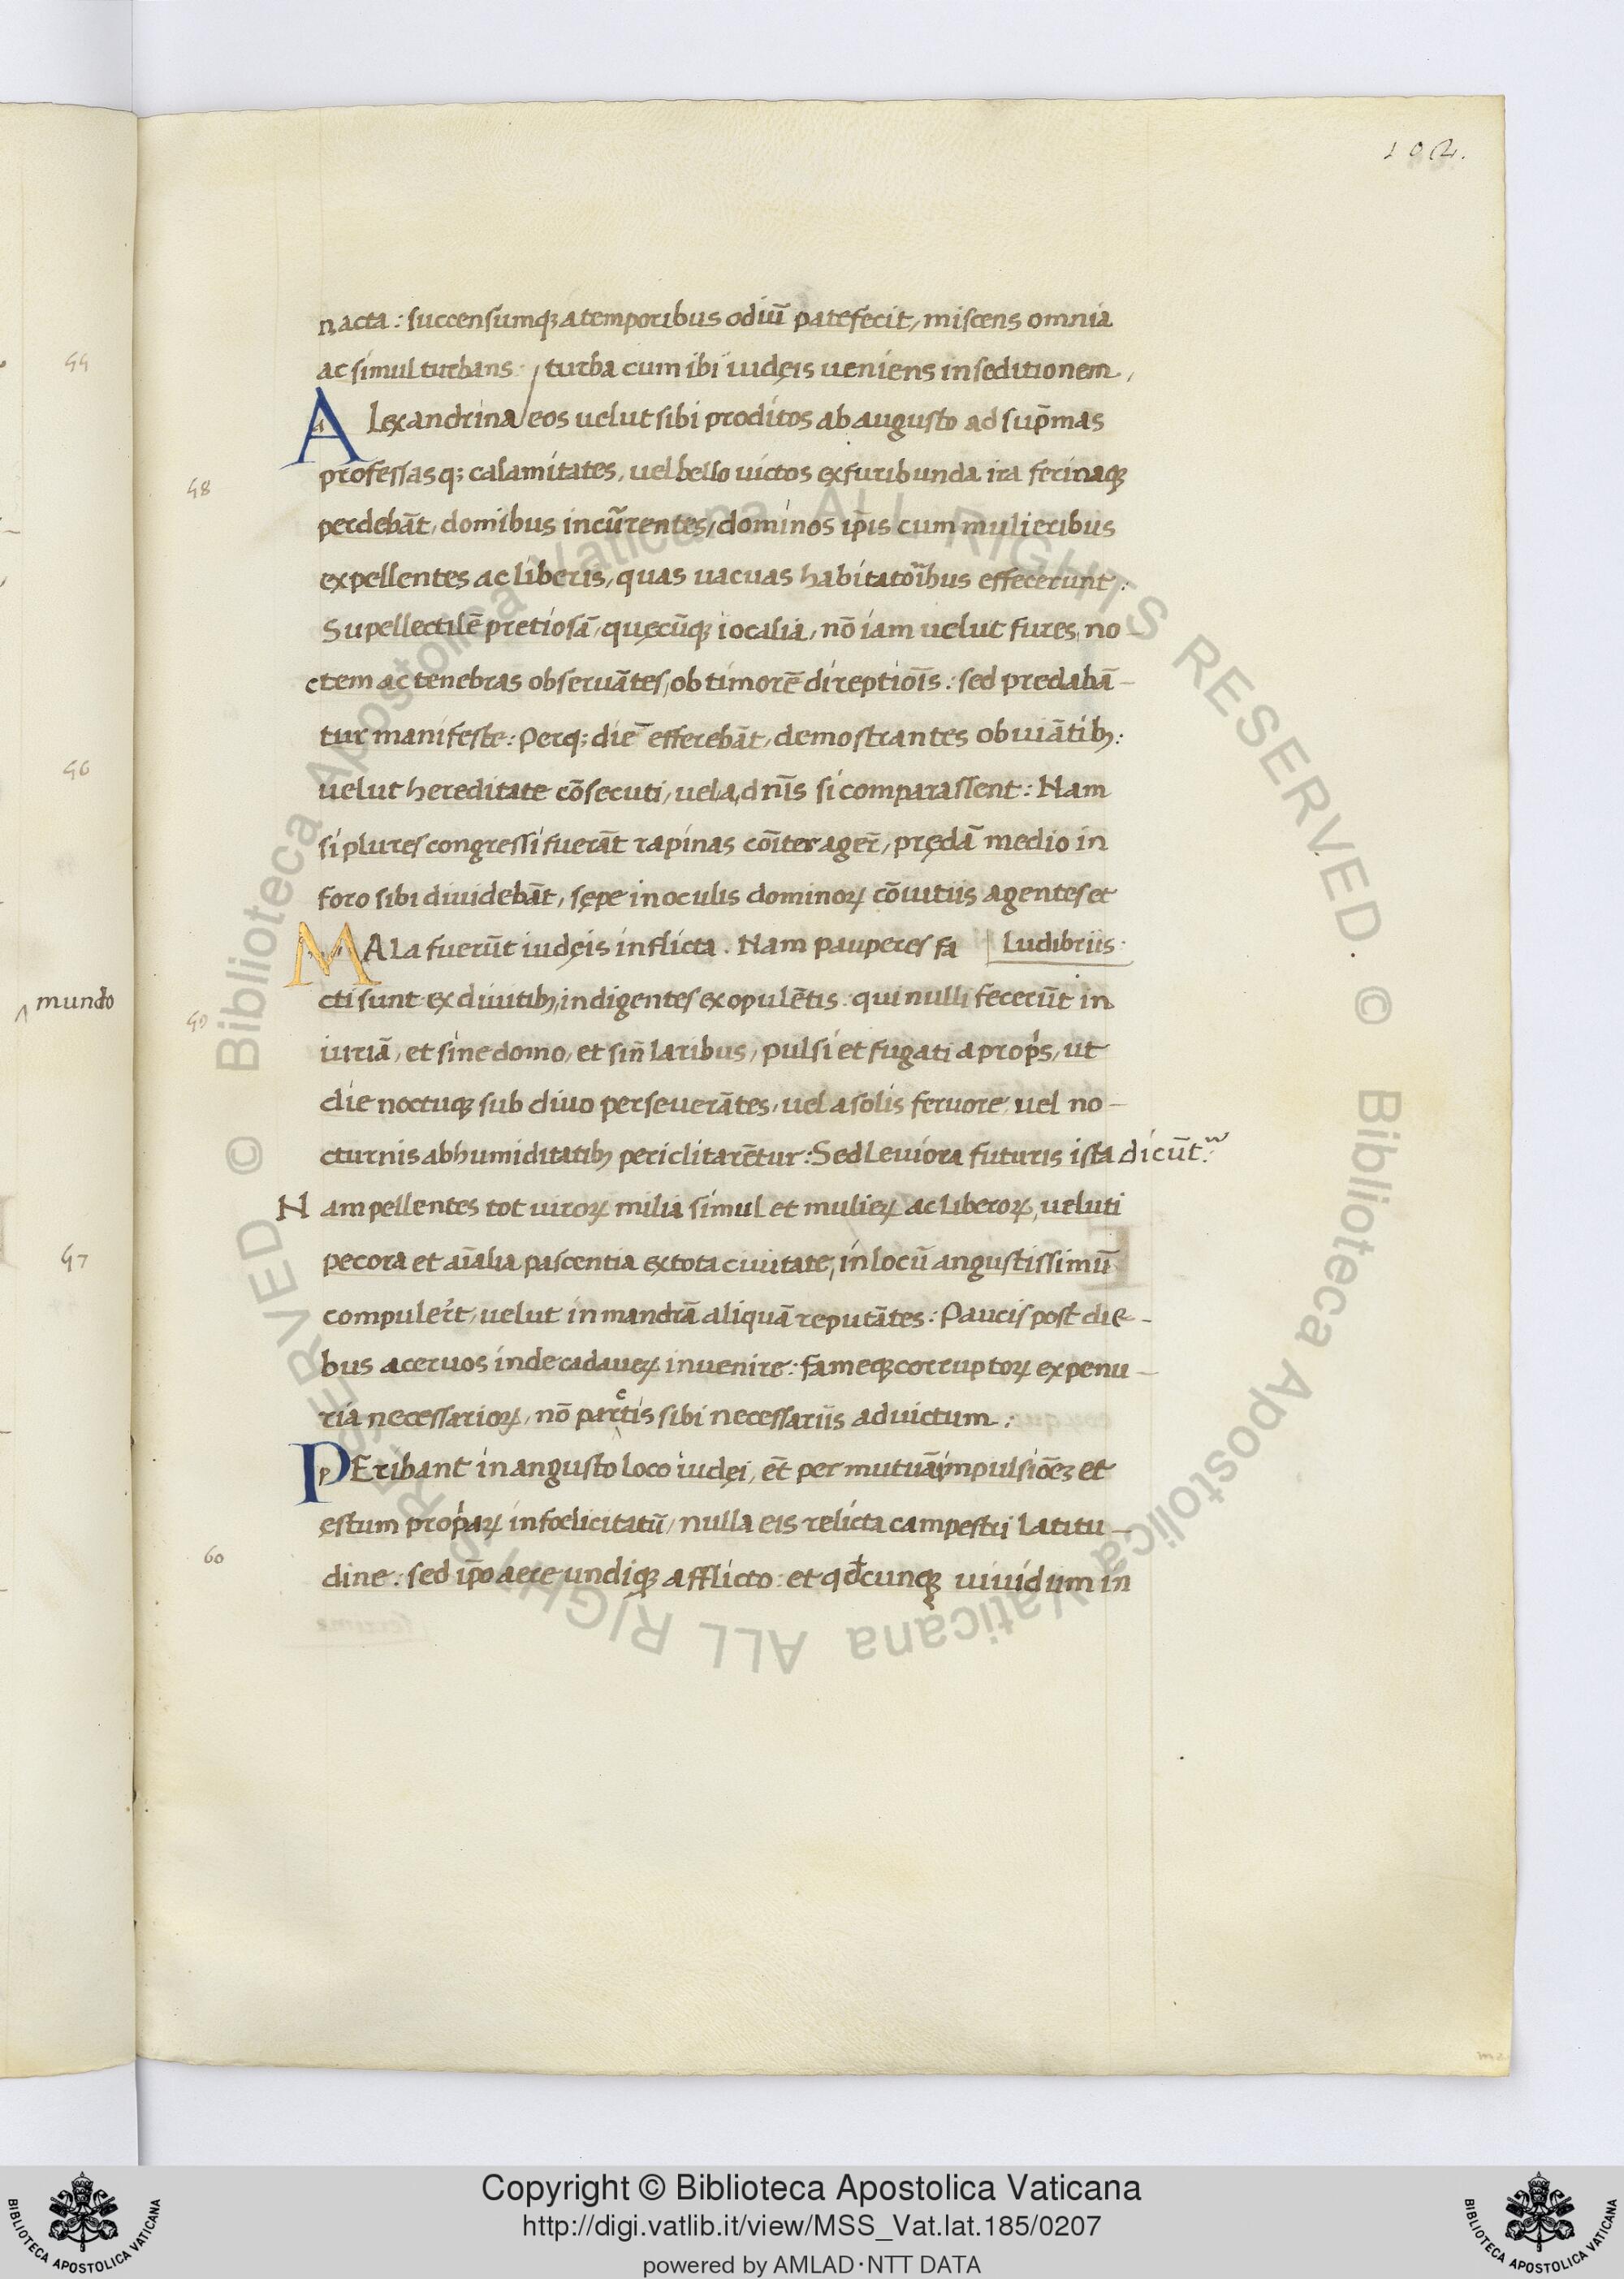 102.
nacta: succensumq; a temporibus odiū patefecit, miscens omnia
ac simul turbans: turba cum ibi iudęis ueniens in seditionem,
Alexandrina eos uelut sibi proditos ab augusto ad sup̄mas
professasq; calamitates, uel bello uictos ex furibunda ira ferinaq;
48
perdebāt, domibus incūrentes, dominos ip̄is cum mulieribus
expellentes ac liberis, quas uacuas habitatoribus effecerunt:
Supellectilē pretiosā, quęcūq; iocalia, nō iam uelut fures, no-
ctem ac tenebras obseruātes, ob timorē direptiōis: sed predabā-
tur manifeste: Perq; diē efferebāt, demostrantes obuiātib;:
uelut hereditate cōsecuti, uel a dn̄is si comparassent: Nam
si plures congressi fuerāt rapinas cōiter ager̄, prędā medio in
foro sibi diuidebāt, sępe in oculis dominoꝝ cōuitiis agentes et
Ludibriis:
MAla fuerūt iudęis inflicta. Nam pauperes fa
cti sunt ex diuitib;, indigentes ex opulētis. qui nulli fecerūt in
49
iuriā, et sine domo, et sin̄ laribus, pulsi et fugati a prop̄s, ut
die noctuq; sub diuo perseuerātes, uel a solis feruore uel no-
cturnis ab humiditatib; periclitarētur: Sed leuiora futuris ista dicūt:
Nam pellentes tot uiroꝝ milia simul et mulieꝝ ac liberoꝝ, ueluti
pecora et aīalia pascentia ex tota ciuitate, in locū angustissimū
compuler̄t, uelut in mandrā aliquā reputātes: Paucis post die-
bus aceruos inde cadaueꝝ inuenire: fameq; corruptoꝝ ex penu-
ria necessarioꝝ, nō partis sibi necessariis ad uictum:
PEribant in angusto loco iudęi, et̄ per mutuā impulsiōez et
ęstum prop̄aꝝ infoelicitatū, nulla eis relicta campestri latitu-
60
dine: sed ip̄o aere undiq; afflicto: et qđcunq; uiuidum in
44
46
mundo
47
© Biblioteca Apostolica Vaticana ALL RIGHTS RESERVED. © Biblioteca Apostolica Vaticana ALL RIGHTS RESERVED.
Copyright © Biblioteca Apostolica Vaticana
http://digi.vatlib.it/view/MSS_Vat.lat.185/0207
powered by AMLAD·NTT DATA
BIBLIOTECA APOSTOLICA VATICANA
BIBLIOTECA APOSTOLICA VATICANA